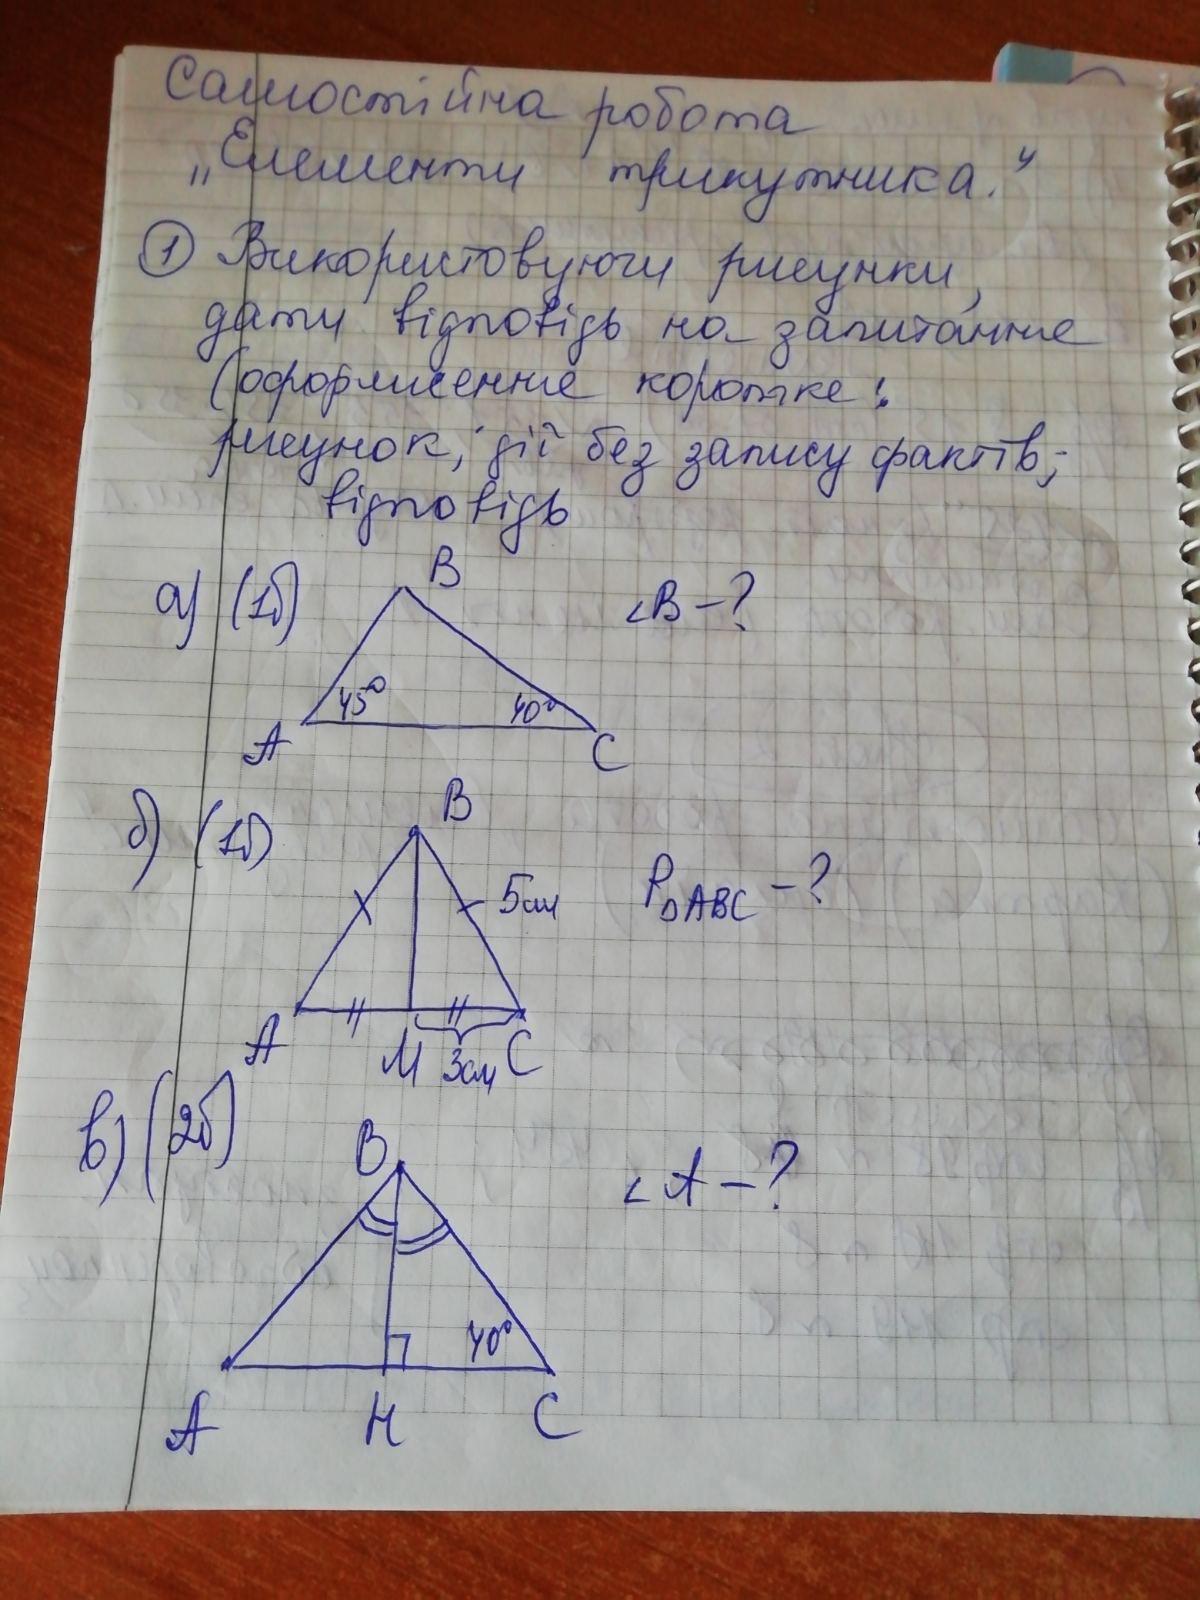 Самостійна робота
„Елементи трикутника."
① Використовуючи рисунки,
дати відповідь на запитання
(оформлення коротке:
рисунок, дії без запису фактів,
відповідь
а) (1б) B ∠B - ?
45° 40°
A C
б) (1б) B
5см P△ABC - ?
A M 3см C
в) (2б) B ∠A - ?
40°
A H C